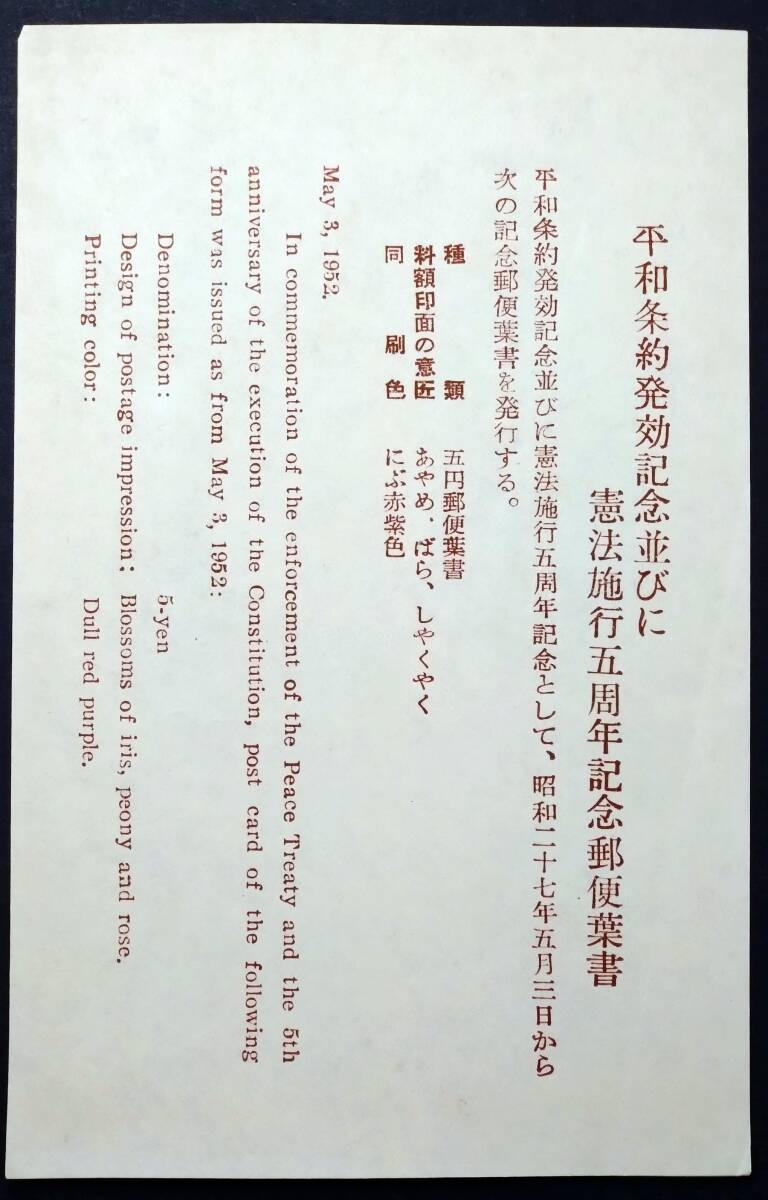 平和条約発効記念並びに
憲法施行五周年記念郵便葉書
平和条約発効記念並びに憲法施行五周年記念として、昭和二十七年五月三日から
次の記念郵便葉書を発行する。
種類 五円郵便葉書
料額印面の意匠 あやめ、ばら、しやくやく
同刷色 にぶ赤紫色
May 3, 1952.
In commemoration of the enforcement of the Peace Treaty and the 5th
anniversary of the execution of the Constitution, post card of the following
form was issued as from May 3, 1952:
Denomination: 5-yen
Design of postage impression: Blossoms of iris, peony and rose.
Printing color: Dull red purple.